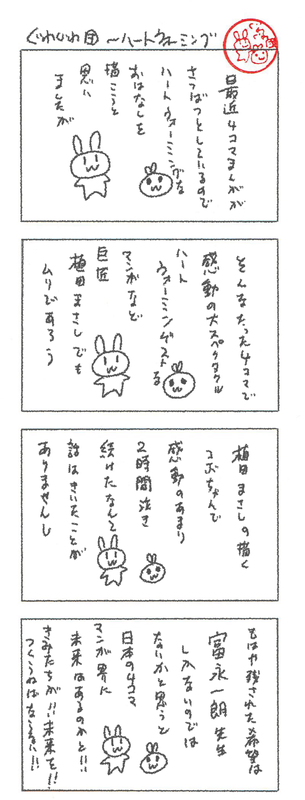 ぐわぐわ団 〜ハートウォーミング
最近4コマまんがが
さつばつとしているので
ハートウォーミングな
おはなしを
描こうと
思い
ましたが
そんなたった4コマで
感動の大スペクタクル
ハート
ウォーミングストな
マンガなど
巨匠
植田まさしでも
ムリであろう
植田まさしの描く
コボちゃんで
感動のあまり
2時間泣き
続けたなんて
話はきいたことが
ありませんし
もはや残された希望は
富永一朗先生
しかないのでは
ないかと思うと
日本の4コマ
マンガ界に
未来はあるのかと!!
きみたちが!!未来を!!
つくらねばならない!!